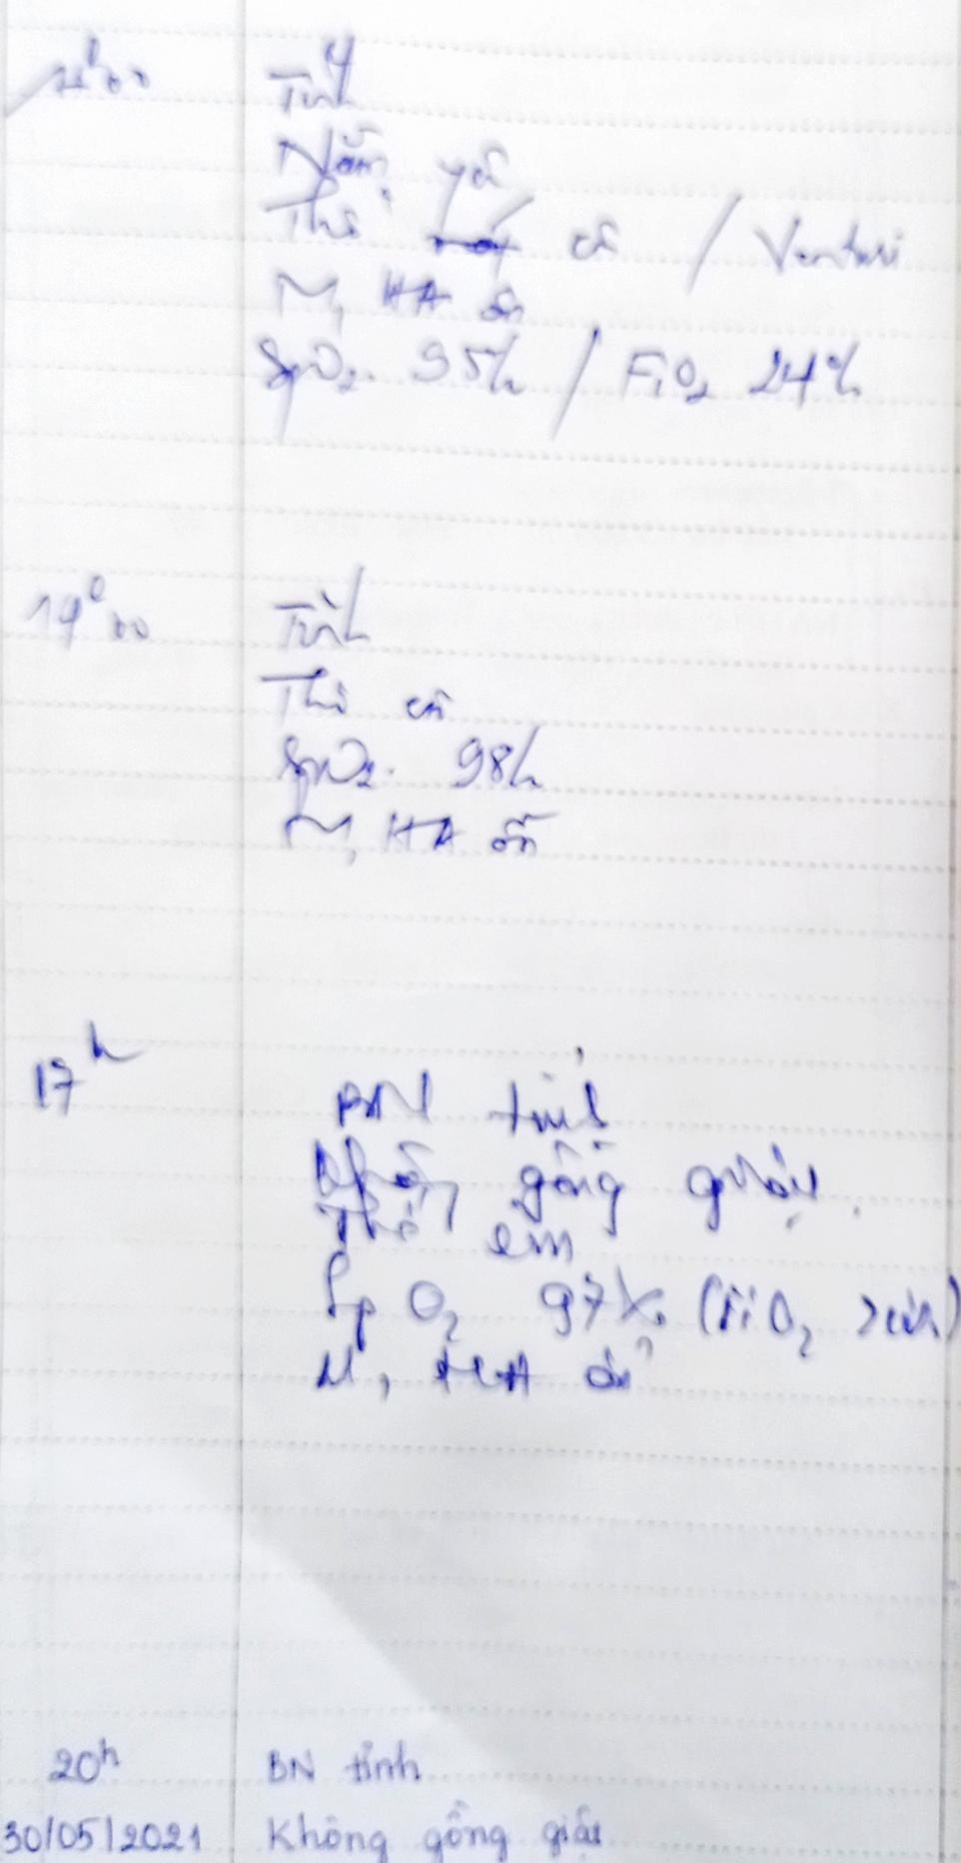 11h00 Tỉnh
Nằm yên
Thở êm / Venturi
M, HA ổn
SpO2. 95% / FiO2 24%
14h00 Tỉnh
Thở êm
SpO2. 98%
M, HA ổn
17h BN tỉnh
Không gồng giật.
Thở êm
SpO2 97% (FiO2
M, HA ổn
20h BN tỉnh
30/05/2021 Không gồng giật